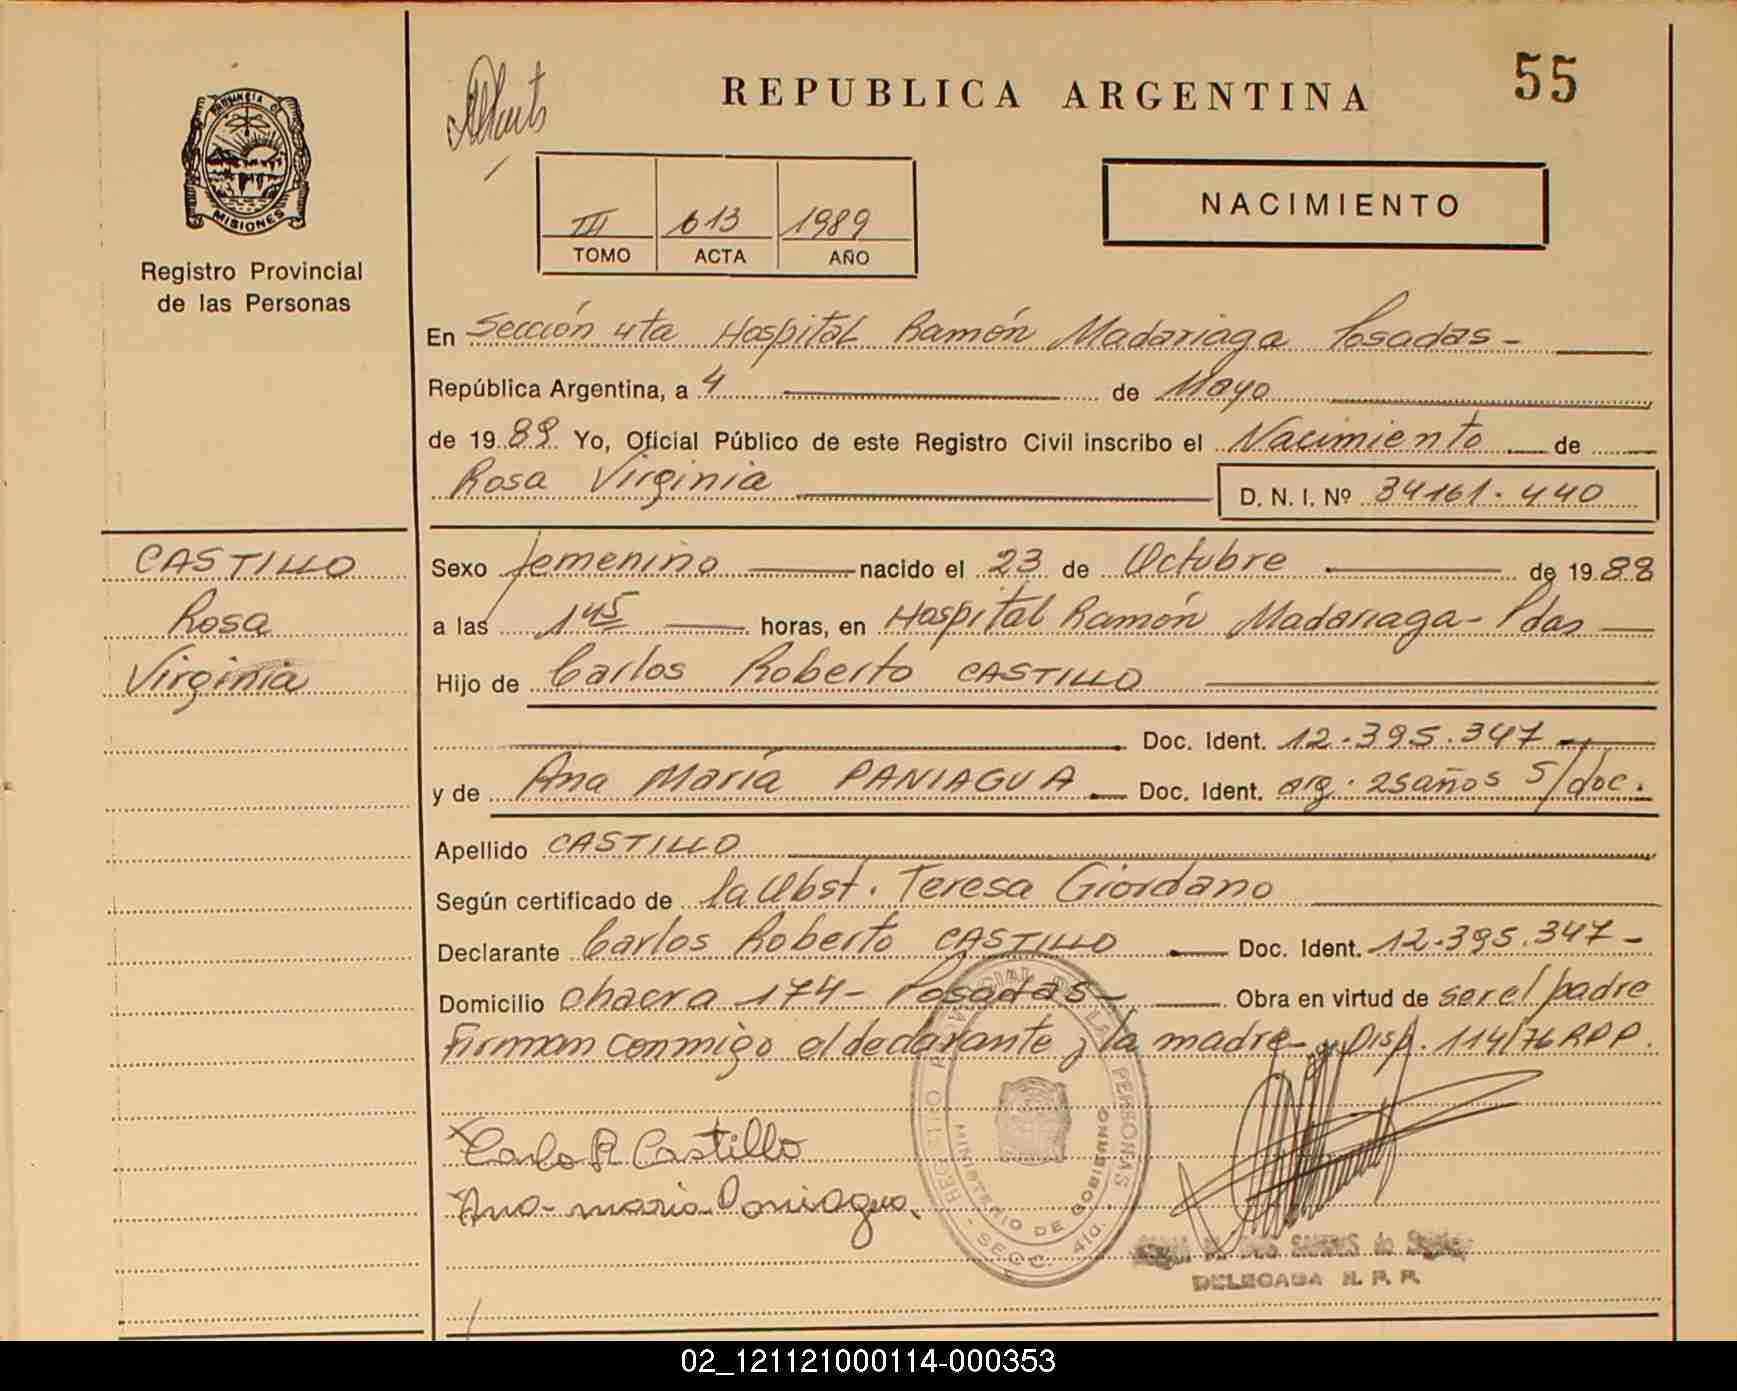 55
REPUBLICA ARGENTINA
PROVINCIA DE
MISIONES
Registro Provincial
de las Personas
NACIMIENTO
III 613 1989
TOMO ACTA AÑO
En Sección 4ta Hospital Ramón Madariaga Posadas -
República Argentina, a 4 de Mayo
de 1989. Yo, Oficial Público de este Registro Civil inscribo el Nacimiento de
Rosa Virginia D. N. I. Nº 34161.440
CASTILLO
Rosa
Virginia
Sexo femenino nacido el 23 de Octubre de 1988
a las 1 45 horas, en Hospital Ramón Madariaga - Pdas
Hijo de Carlos Roberto CASTILLO
Doc. Ident. 12.395.347
y de Ana María PANIAGUA Doc. Ident. arg. 25 años s/doc.
Apellido CASTILLO
Según certificado de la Obst. Teresa Giordano
Declarante Carlos Roberto CASTILLO Doc. Ident. 12.395.347 -
Domicilio chacra 174 - Posadas - Obra en virtud de ser el padre
Firman conmigo el declarante y la madre - Disp. 114/76 RPP.
Carlo R Castillo
Ana maria Paniagua.
REGISTRO PROVINCIAL DE LAS PERSONAS
MINISTERIO DE GOBIERNO
- SECC. 4ta. -
DELEGADA R. P. P.
02_121121000114-000353